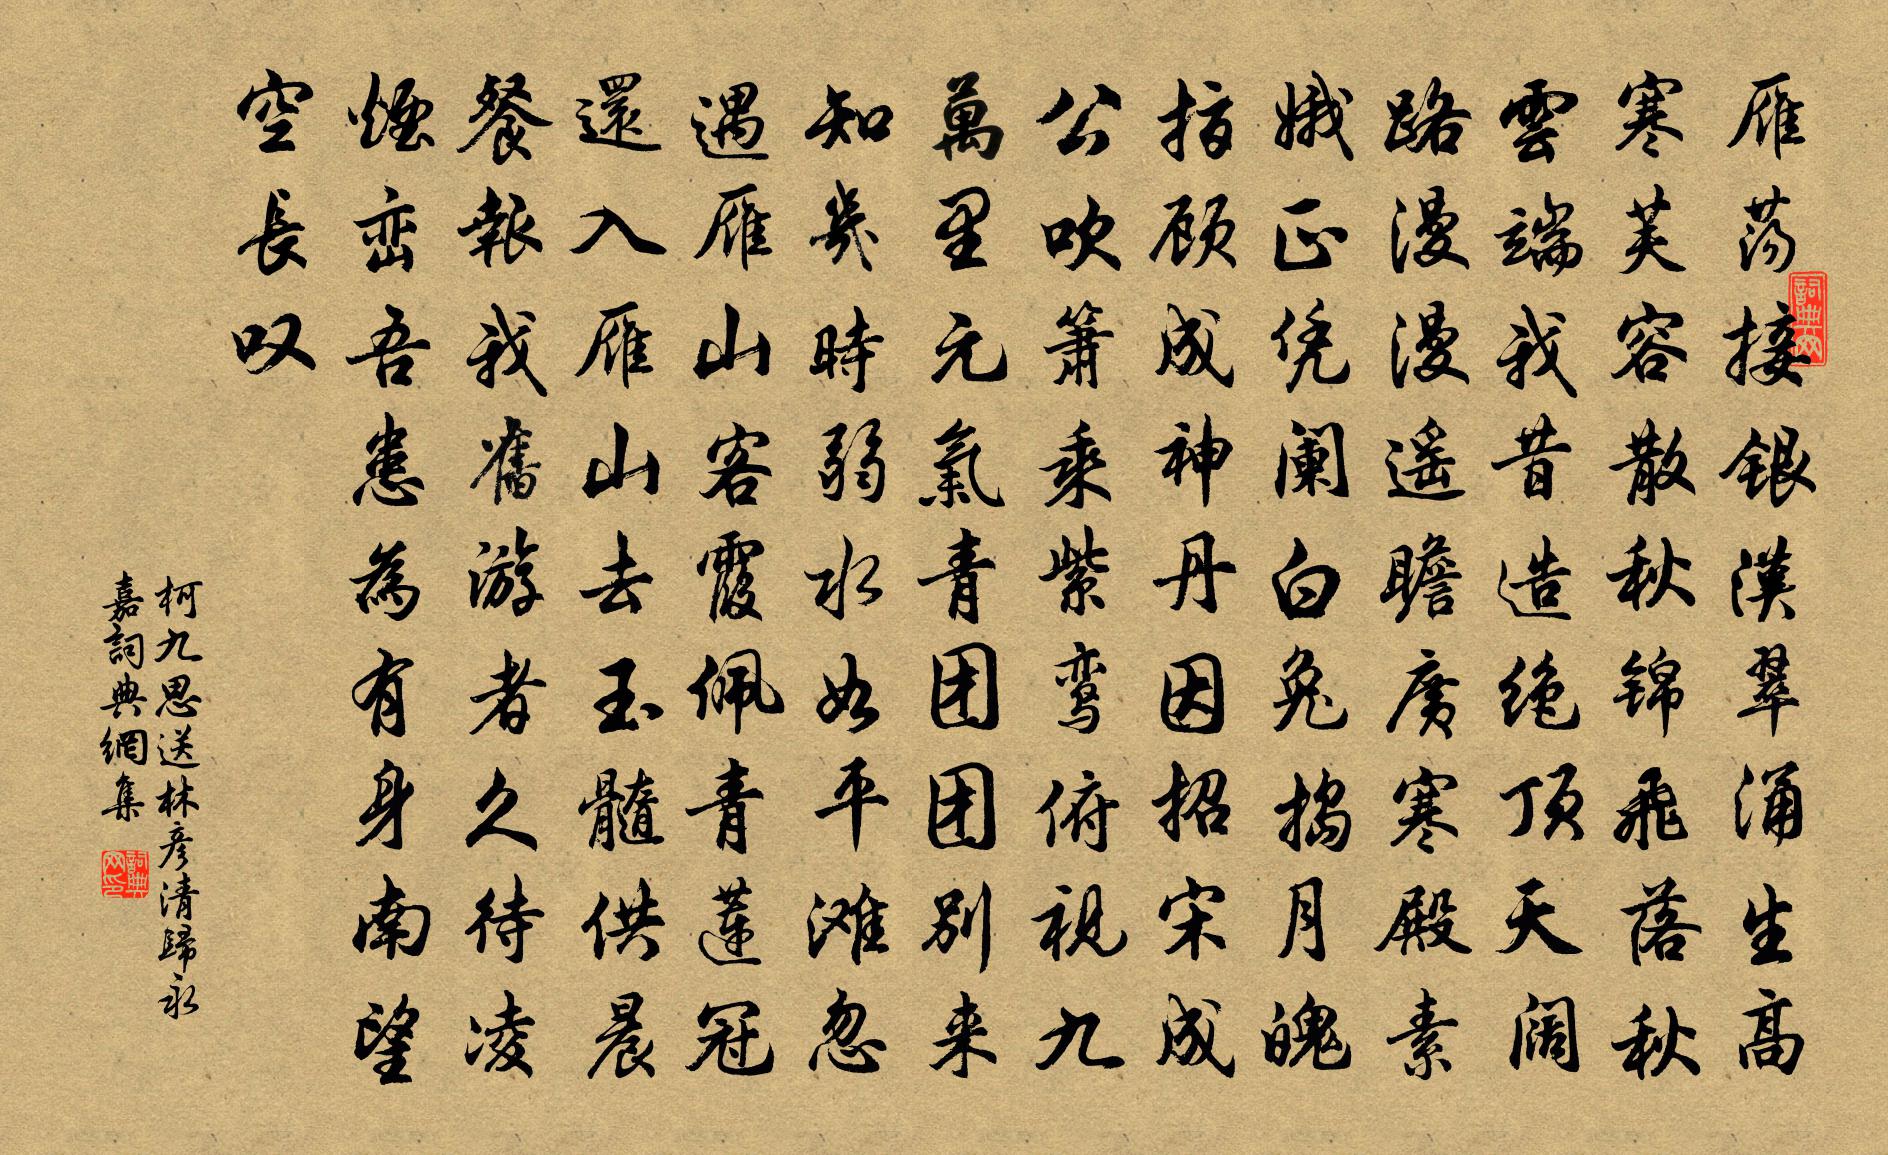 雁荡接銀漢翠涌生高
寒芙容散秋锦飛落秋
雲端我昔造绝顶天阔
路漫漫遥瞻廣寒殿素
娥正凭阑白兔捣月魄
指顾成神丹因招宋成
公吹箫乘紫鸾俯視九
萬里元氣青团团别来
知幾時弱水如平滩忽
遇雁山客霞佩青莲冠
還入雁山去玉髓供晨
餐報我舊游者久待凌
煙峦吾患為有身南望
空長叹
柯九思送林彦清歸永
嘉詞典網集
詞典网
詞典网印